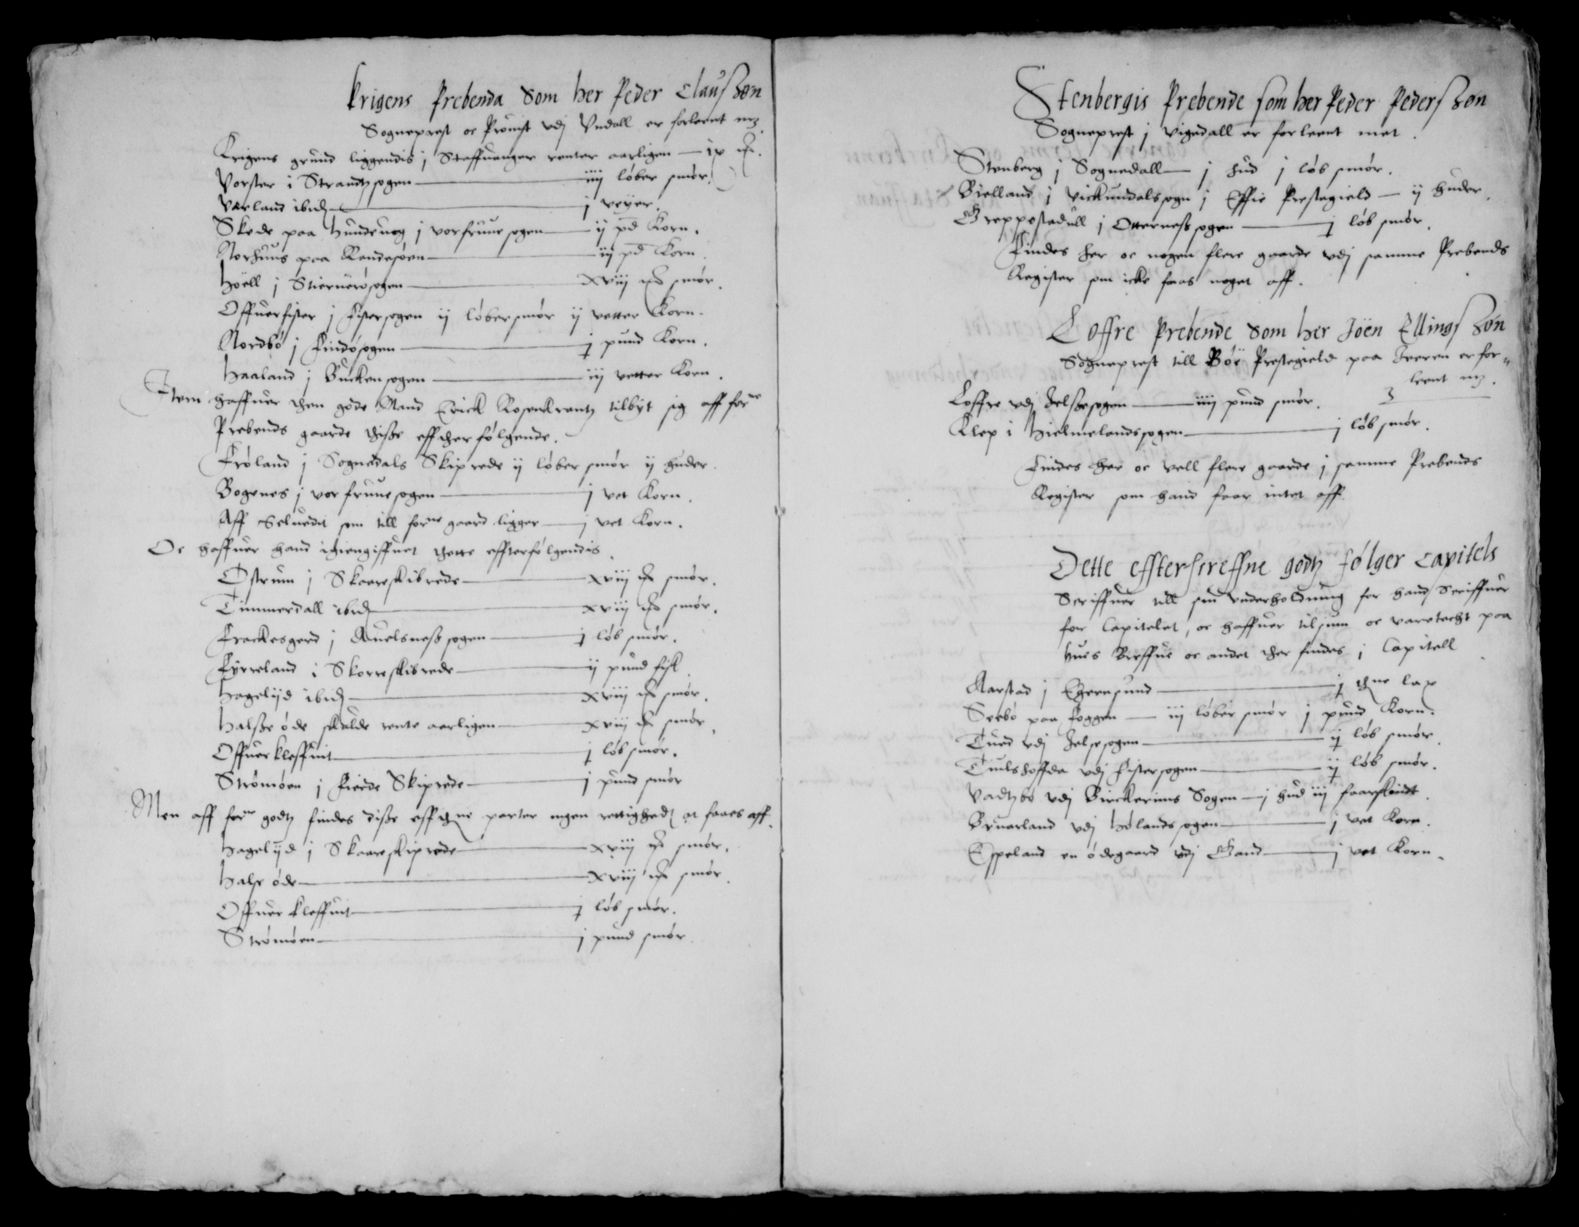 Krigens Prebenda Som her Peder Clausszøn
Sogneprest oc Prouist vdj Vndall er forleent mz.
Krigens grund liggendis j Staffuanger renter aarligen — ix
Vorster i Strandtzsogen — iiij løber smør.
Varland ibid — j
Skede paa Hundeuog j vorfruuesogen — ij pd Korn.
Norhuus paa Rendesøen — iij pd Korn
Høell j Stiernerøsogen — xviij smør.
Offuerfister j fistersogen ij løber smør ij vetter Korn.
Nordbø j Findøsogen — j pund Korn.
Haaland j Buckensogen — iij vetter Korn.
Item haffuer then gode Mand Erick Rosenkrantz tilbyt sig aff forne
Prebends gaarde thisse effther følgende.
Frøland j Sogendals Skiprede ij løber smør ij huder.
Bogenes j vor fruuesogen — j vet Korn.
Aff Seluedt som till forne gaard ligger — j vet Korn.
Oc haffuer hand igiengiffuet thette effterfølgendis.
Østrum j Skaareskibrede — xviij smør.
Timmerdall ibid — xviij smør.
Frackesgerd j Auelsness sogen — j løb smør.
Fyrreland i Skorreskibrede — ij pund fisk
Hagelijd ibid — xviij smør.
Halsse øde skulde rente aarligen — xviij smør.
Offuerkleffuit — j løb smør.
Strømøen j fierde Skiprede — j pund smør
Men aff forne godtz findes disse effthne parter ingen rettighed at faaes aff.
Hagelijd j Skaareskiprede — xviij smør.
Halse øde — xviij smør.
Offuer kleffuit — j løb smør.
Strømøen — j pund smør
Stenbergis Prebende som her Peder Pederszøn
Sogneprest j Vigedall er forleent met.
Stenberg j Sognedall — j hud j løb smør.
Bielland j Vickundalsogn j Effie Prestegield — ij huder.
j Otterness sogen — j løb smør.
Findes her oc nogen flere gaarde vdj samme Prebends
Register som icke faas noget aff.
Loffre Prebende Som her Jøen Ellingszøn
Sogneprest till Bør Prestegield paa Ideren er for-
leent mz.
Loffre vdj Jelssesogen — iiij pund smør.
Klep i Hielmelandssogen — j løb smør.
Findes her oc vell flere gaarde j samme Prebends
Register som hand faar intet aff
Dette effterscreffne godtz følger Capitels
Scriffuer till sin vnderholdning for hand Scriffuer
for Capitelet, oc haffuer tilsiun oc varetecht paa
Breffue oc andet ther findes j Capitell
Aarstad j Egersund — j thne lax
Seebø paa Foggen — iij løber smør j pund Korn.
Tued vdj Jelsesogen — ij løb smør.
vdj fistersogen — ij løb smør.
Vadtzbø vdj Birckerims Sogen — j hud iij faarskindt.
Bruerland vdj Hølandssogen — j vet Korn.
Espeland en ødegaard vdj Gand — j vet Korn.